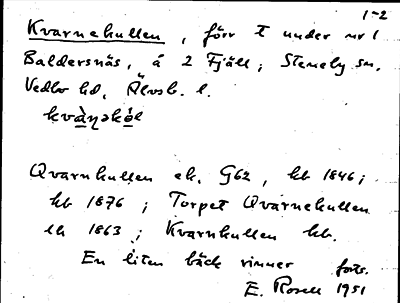 1-2
Kvarnekullen, förr t under nr 1
Baldersnäs, å 2 Fjäll; Steneby sn,
Vedbo hd, Älvsb. l.
Qvarnkullen ek. G62, kb 1846;
kb 1876; Torpet Qvarnekullen
lh 1863; Kvarnkullen kb.
En liten bäck rinner forts.
E. Rosell 1951